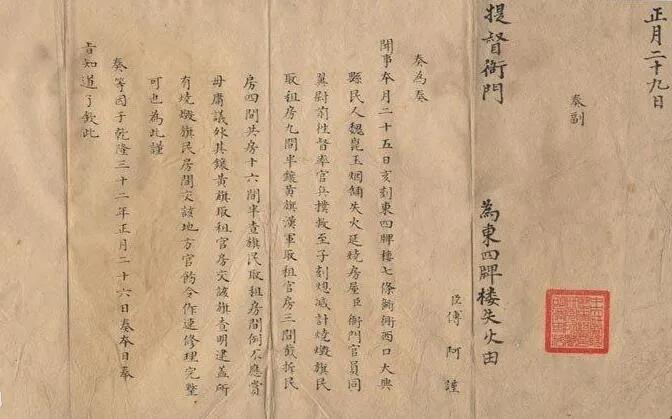 正月二十九日
奏副
提督衙門 為東四牌楼失火由
臣傅 阿 謹
奏為奏
聞事本月二十五日亥刻東四牌樓七條衚衕西口大興
縣民人魏崑玉烟舖失火延燒房屋臣衙門官員同
翼尉前徃督率官兵撲救至子刻熄滅計燒燬旗民
取租房九間半鑲黃旗漢軍取租官房三間截拆民
房四間共房十六間半查旗民取租房間例不應賞
毋庸議外其鑲黃旗取租官房交該旗查明建蓋所
有燒燬旗民房間交該地方官飭令作速修理完整
可也為此謹
奏等因于乾隆三十二年正月二十六日奏本日奉
旨知道了欽此